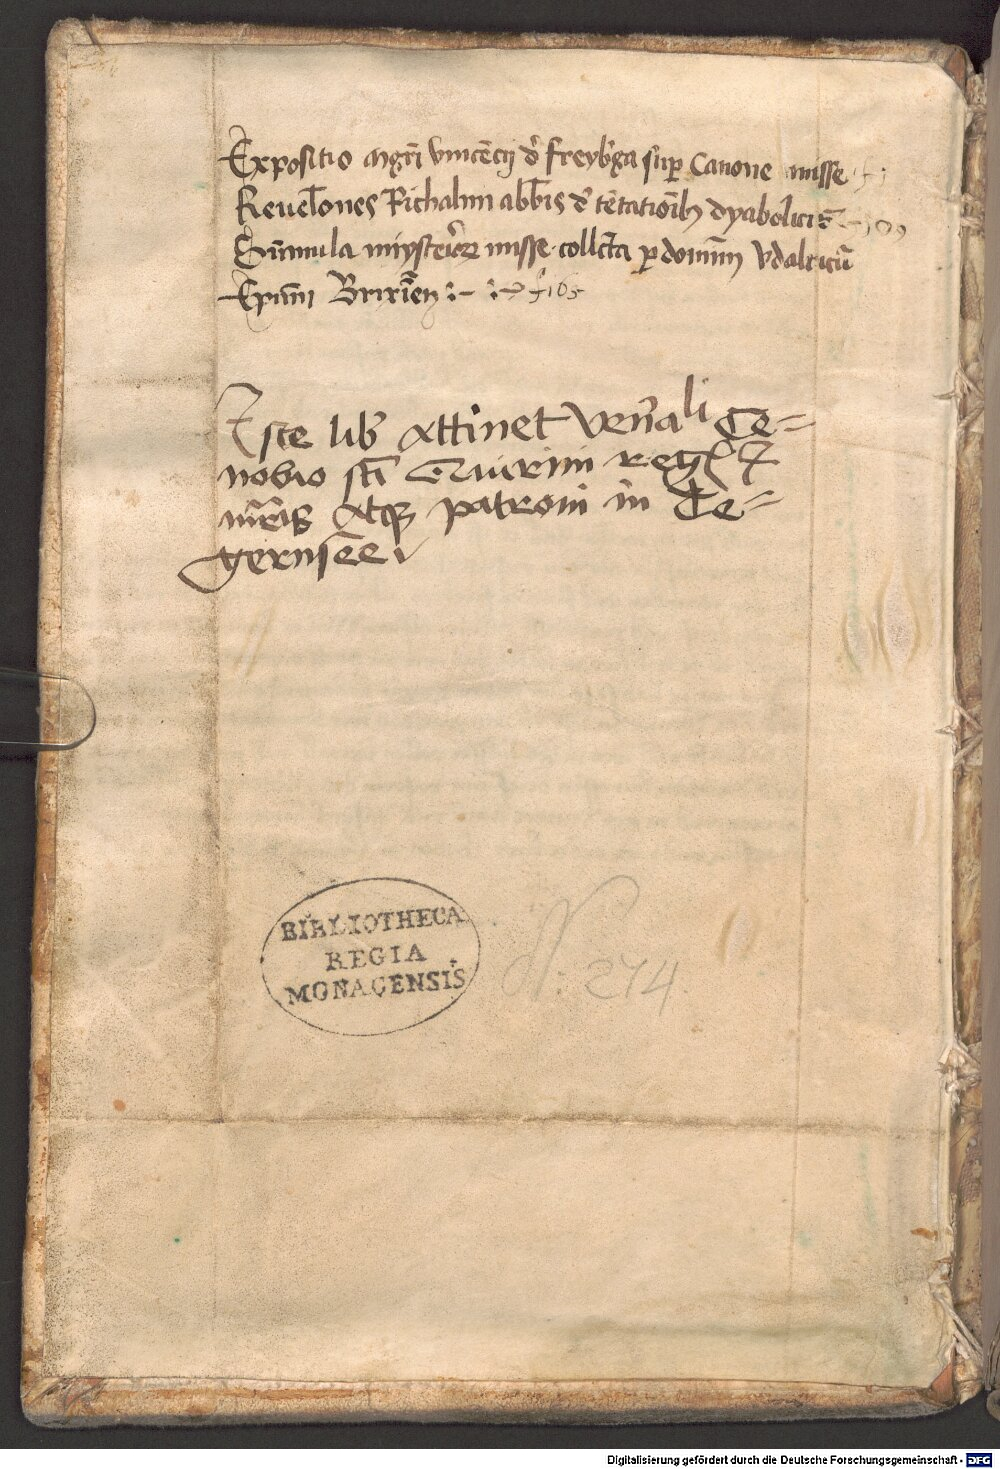 Expositio mgri vincēcij de freyb'ga sup Canone misse f 1
Reuel̄ones Richalmi abb̄is de tētatiōib9 dyabolicis
Sūmula mi'ysterioꝝ misse collc̄ta p domīm Vdalricū
Ep̄um Brixien̄ :- f 165
Iste lib' Attinet Ven̄ali Ce=
nobio sc̄i Quirini regis Et
m̄ris Atqꝫ patroni in Te=
gernsee
BIBLIOTHECA
REGIA
MONACENSIS
N: 274.
Digitalisierung gefördert durch die Deutsche Forschungsgemeinschaft - DFG